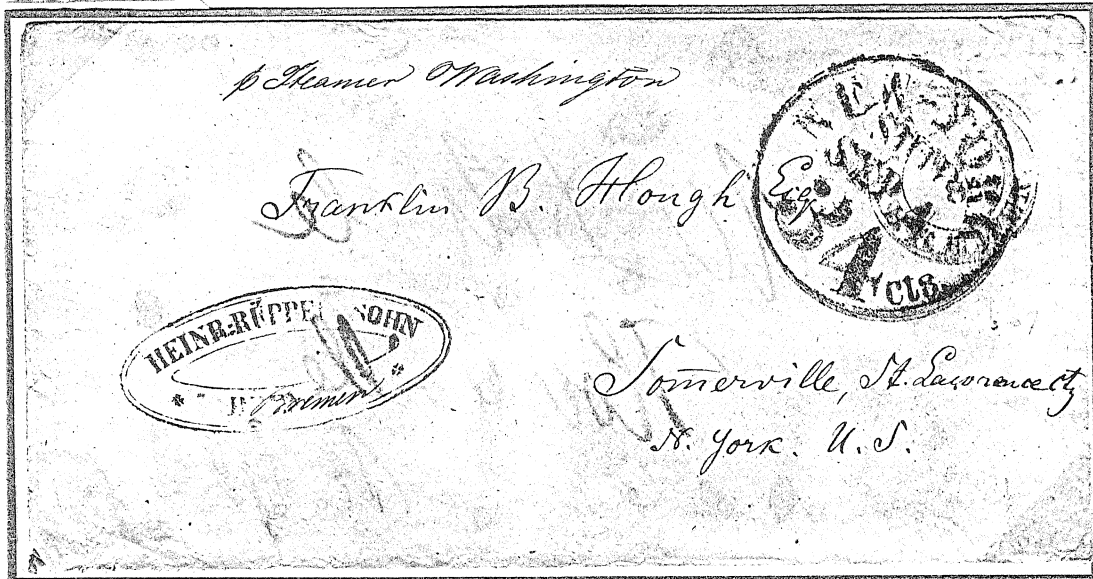 p Steamer Washington
Franklin B. Hough Esq.
NEW-YORK
4 cts
HEINR: RÜPPE SOHN
Bremen
Somerville, St. Lawrence cty
N. York. U. S.